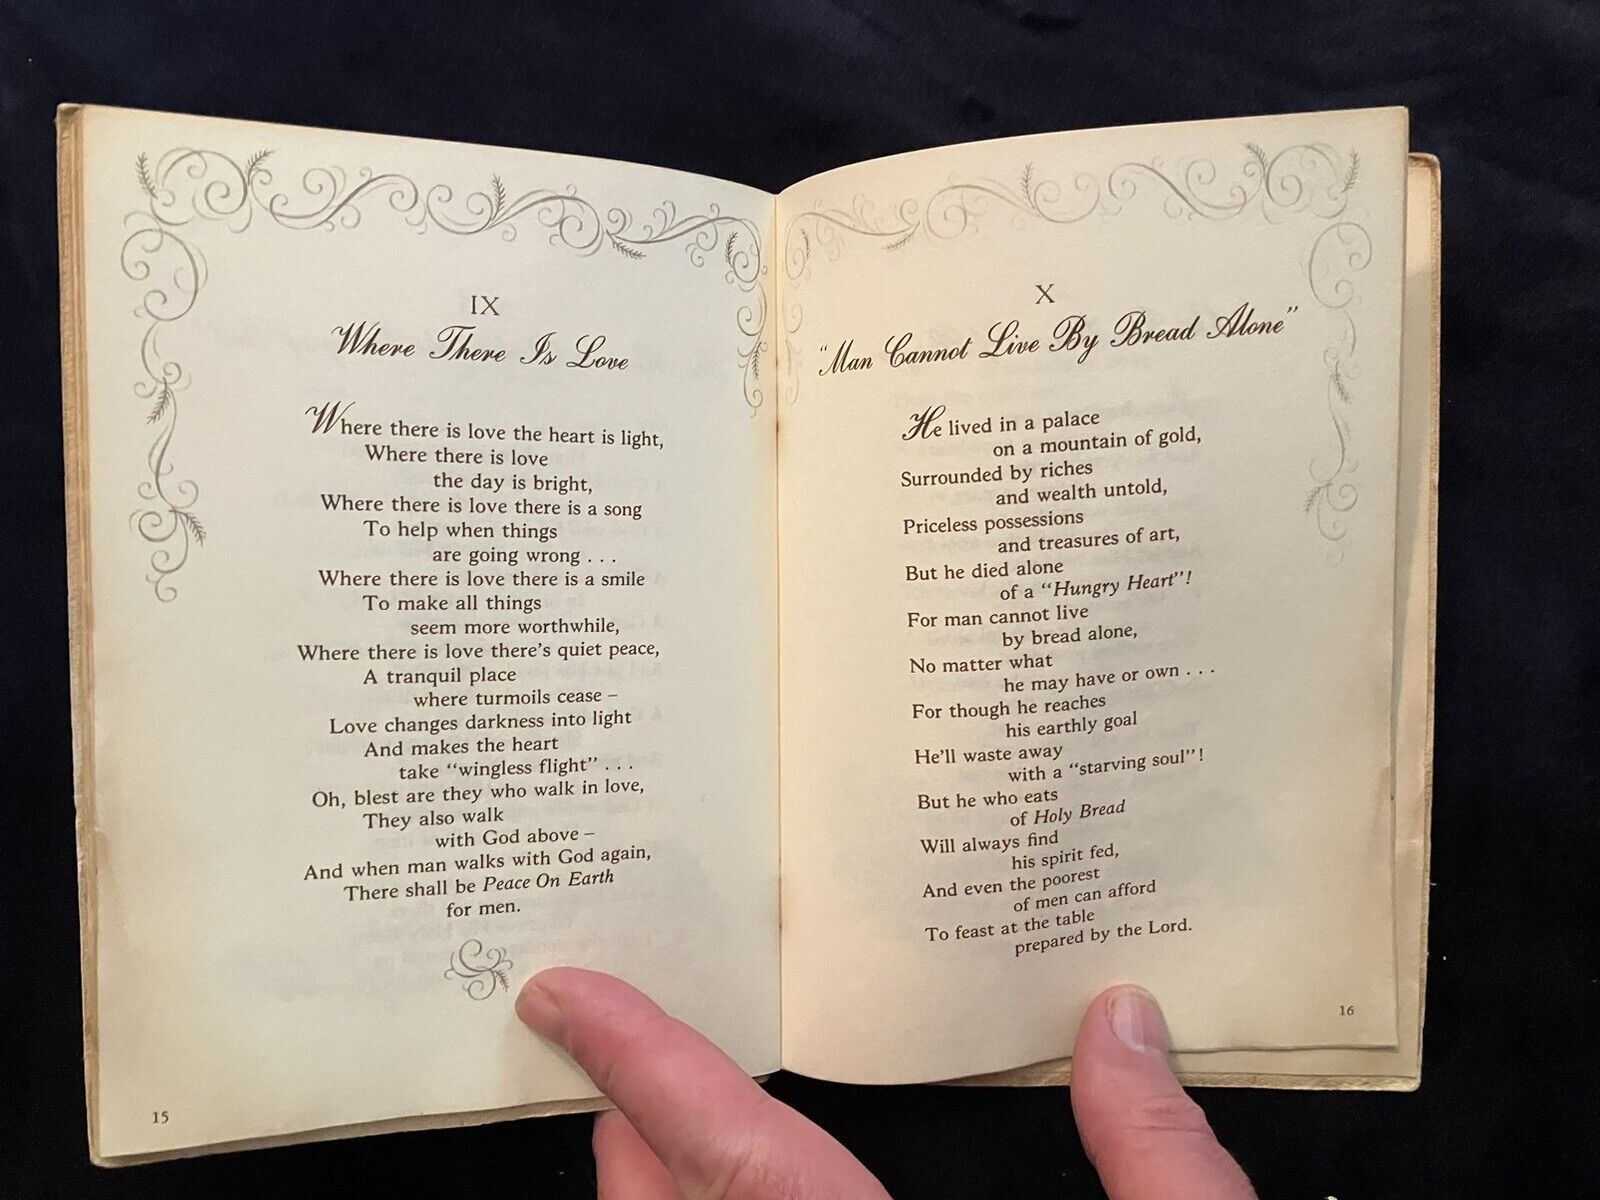 IX
Where There Is Love
Where there is love the heart is light,
Where there is love
the day is bright,
Where there is love there is a song
To help when things
are going wrong . . .
Where there is love there is a smile
To make all things
seem more worthwhile,
Where there is love there's quiet peace,
A tranquil place
where turmoils cease –
Love changes darkness into light
And makes the heart
take "wingless flight" . . .
Oh, blest are they who walk in love,
They also walk
with God above –
And when man walks with God again,
There shall be Peace On Earth
for men.
15
X
"Man Cannot Live By Bread Alone"
He lived in a palace
on a mountain of gold,
Surrounded by riches
and wealth untold,
Priceless possessions
and treasures of art,
But he died alone
of a "Hungry Heart"!
For man cannot live
by bread alone,
No matter what
he may have or own . . .
For though he reaches
his earthly goal
He'll waste away
with a "starving soul"!
But he who eats
of Holy Bread
Will always find
his spirit fed,
And even the poorest
of men can afford
To feast at the table
prepared by the Lord.
16